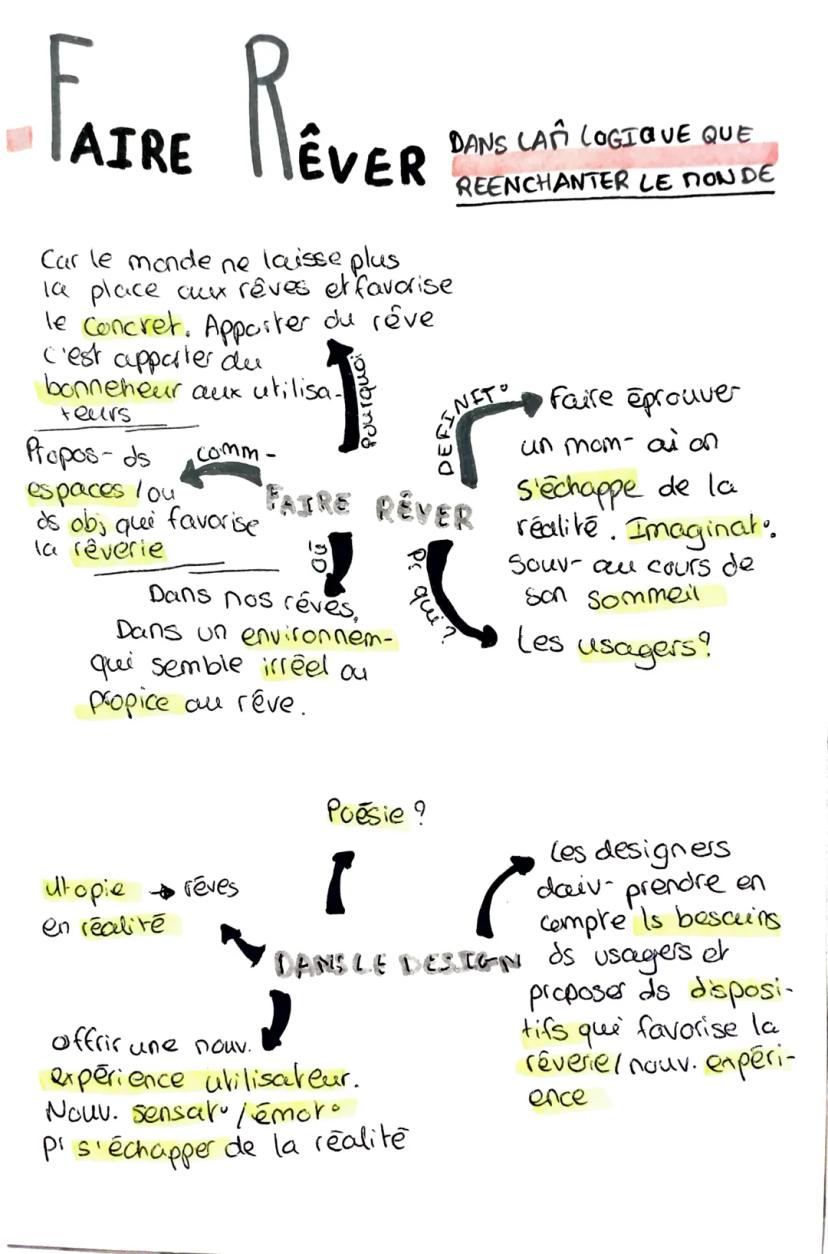 FAIRE RÊVER
DANS LA M̂ LOGIQUE QUE
REENCHANTER LE MONDE
Car le monde ne laisse plus
la place aux rêves et favorise
le concret. Apporter du rêve
c'est apporter du
bonneheur aux utilisa-
teurs
Pourquoi
comm-
Propos- ds
espaces / ou
ds obj qui favorise
la rêverie
DEFINIT°
Faire éprouver
un mom- où on
s'échappe de la
réalité. Imaginat°.
Souv- au cours de
son sommeil
FAIRE RÊVER
Où
Dans nos rêves,
Dans un environnem-
qui semble irréel ou
propice au rêve.
Pr qui?
Les usagers?
Poésie ?
Utopie → rêves
en réalité
Les designers
doiv- prendre en
compte ls besoins
ds usagers et
proposer ds disposi-
tifs qui favorise la
rêverie / nouv. expéri-
ence
DANS LE DESIGN
offrir une nouv.
expérience utilisateur.
Nouv. sensat° / émot°
pr s'échapper de la réalité